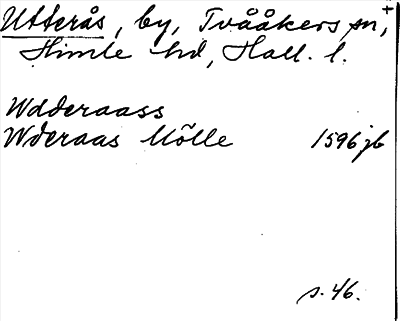 Utterås, by, Tvååkers sn,
Himle hd, Hall. l.
Wdderaass
Wderaas Mölle 1596 jb
s. 46.